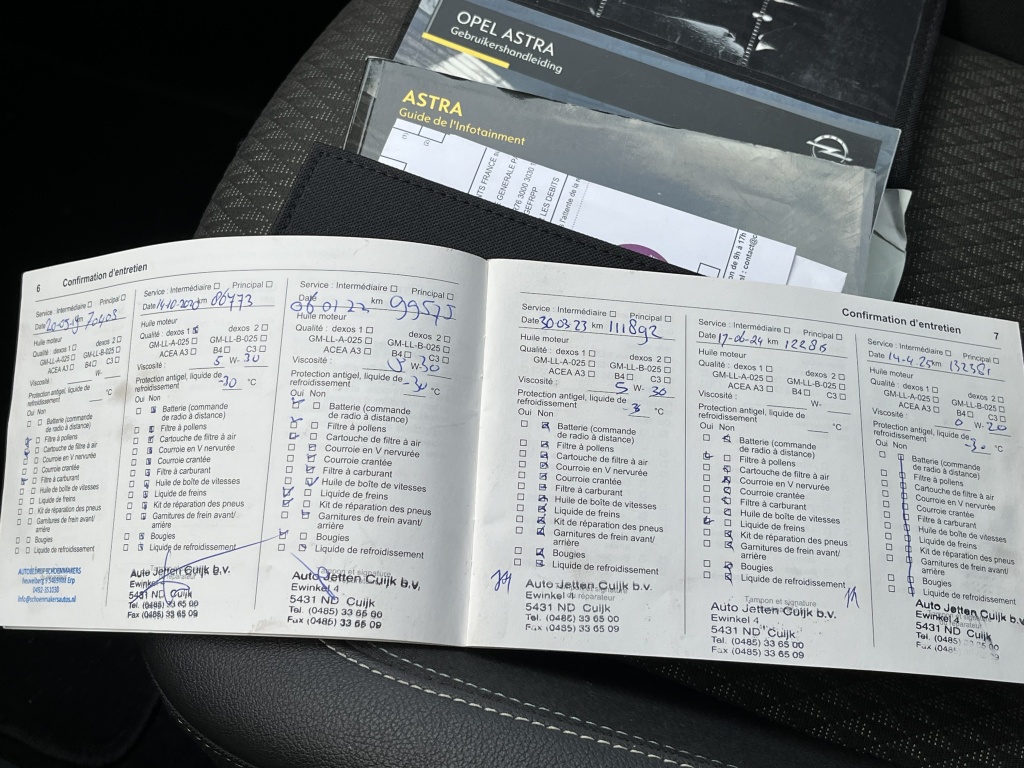 OPEL ASTRA
Gebruikershandleiding
ASTRA
Guide de l'Infotainment
GENERALE
LES DEBITS
6
Confirmation d'entretien
Service : Intermédiaire ☐ Principal ☐
Date 20-05-19
Huile moteur
Qualité : dexos 1 ☐ dexos 2 ☐
GM-LL-A-025 ☐ GM-LL-B-025 ☐
ACEA A3 ☐ B4 ☐ C3 ☐
Viscosité : W-
Protection antigel, liquide de
refroidissement °C
Oui Non
Batterie (commande
de radio à distance)
Filtre à pollens
Cartouche de filtre à air
Courroie en V nervurée
Courroie crantée
Filtre à carburant
Huile de boîte de vitesses
Liquide de freins
Kit de réparation des pneus
Garnitures de frein avant/
arrière
Bougies
Liquide de refroidissement
0492-351030
info@schoenmakersautos.nl
Service : Intermédiaire ☐ Principal ☐
Date 14-10-2020 km 86473
Huile moteur
Qualité : dexos 1 dexos 2 ☐
GM-LL-A-025 ☐ GM-LL-B-025 ☐
ACEA A3 ☐ B4 ☐ C3 ☐
Viscosité : 5 W- 30
Protection antigel, liquide de
refroidissement -30 °C
Oui Non
Batterie (commande
de radio à distance)
Filtre à pollens
Cartouche de filtre à air
Courroie en V nervurée
Courroie crantée
Filtre à carburant
Huile de boîte de vitesses
Liquide de freins
Kit de réparation des pneus
Garnitures de frein avant/
arrière
Bougies
Liquide de refroidissement
Auto Jetten Cuijk b.v.
Ewinkel 4
5431 ND Cuijk
Tel. (0485) 33 65 00
Fax (0485) 33 65 09
Service : Intermédiaire ☐ Principal ☐
Date km
Huile moteur
Qualité : dexos 1 ☐ dexos 2 ☐
GM-LL-A-025 ☐ GM-LL-B-025 ☐
ACEA A3 ☐ B4 ☐ C3 ☐
Viscosité : 5 W- 30
Protection antigel, liquide de
refroidissement -30 °C
Oui Non
Batterie (commande
de radio à distance)
Filtre à pollens
Cartouche de filtre à air
Courroie en V nervurée
Courroie crantée
Filtre à carburant
Huile de boîte de vitesses
Liquide de freins
Kit de réparation des pneus
Garnitures de frein avant/
arrière
Bougies
Liquide de refroidissement
Tampon et signature
Auto Jetten Cuijk b.v.
Ewinkel 4
5431 ND Cuijk
Tel. (0485) 33 65 00
Fax (0485) 33 65 09
Confirmation d'entretien
7
Service : Intermédiaire ☐ Principal ☐
Date 30-03-23 km 111892
Huile moteur
Qualité : dexos 1 ☐ dexos 2 ☐
GM-LL-A-025 ☐ GM-LL-B-025 ☐
ACEA A3 ☐ B4 ☐ C3 ☐
Viscosité : 5 W- 30
Protection antigel, liquide de
refroidissement °C
Oui Non
Batterie (commande
de radio à distance)
Filtre à pollens
Cartouche de filtre à air
Courroie en V nervurée
Courroie crantée
Filtre à carburant
Huile de boîte de vitesses
Liquide de freins
Kit de réparation des pneus
Garnitures de frein avant/
arrière
Bougies
Liquide de refroidissement
Auto Jetten Cuijk b.v.
Ewinkel 4
5431 ND Cuijk
Tel. (0485) 33 65 00
Fax (0485) 33 65 09
Service : Intermédiaire ☐ Principal ☐
Date 17-06-24 km
Huile moteur
Qualité : dexos 1 ☐ dexos 2 ☐
GM-LL-A-025 ☐ GM-LL-B-025 ☐
ACEA A3 ☐ B4 ☐ C3 ☐
Viscosité : W-
Protection antigel, liquide de
refroidissement °C
Oui Non
Batterie (commande
de radio à distance)
Filtre à pollens
Cartouche de filtre à air
Courroie en V nervurée
Courroie crantée
Filtre à carburant
Huile de boîte de vitesses
Liquide de freins
Kit de réparation des pneus
Garnitures de frein avant/
arrière
Bougies
Liquide de refroidissement
Tampon et signature
Auto Jetten Cuijk b.v.
Ewinkel 4
5431 ND Cuijk
Tel. (0485) 33 65 00
Fax (0485) 33 65 09
Service : Intermédiaire ☐ Principal ☐
Date 14-4-25 km
Huile moteur
Qualité : dexos 1 ☐ dexos 2 ☐
GM-LL-A-025 ☐ GM-LL-B-025 ☐
ACEA A3 ☐ B4 ☐ C3 ☐
Viscosité : 0 W- 20
Protection antigel, liquide de
refroidissement -30 °C
Oui Non
Batterie (commande
de radio à distance)
Filtre à pollens
Cartouche de filtre à air
Courroie en V nervurée
Courroie crantée
Filtre à carburant
Huile de boîte de vitesses
Liquide de freins
Kit de réparation des pneus
Garnitures de frein avant/
arrière
Bougies
Liquide de refroidissement
Auto Jetten Cuijk b.v.
Ewinkel 4
5431 ND Cuijk
Tel. (0485) 33 65 00
Fax (0485)